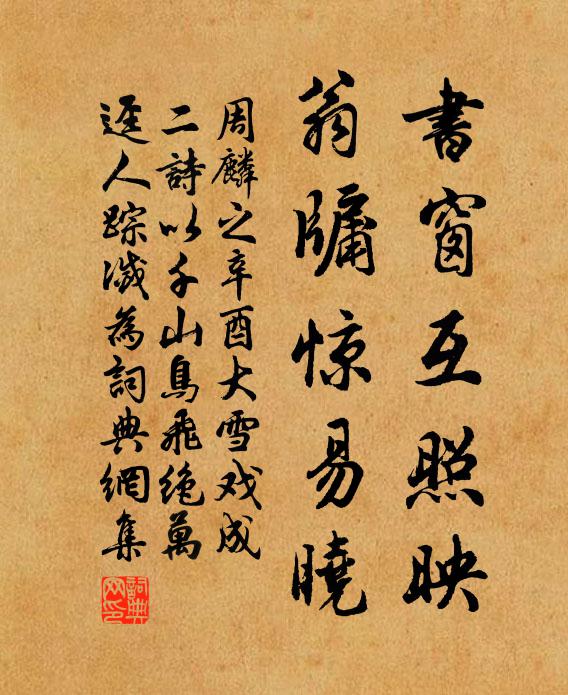 書窗互照映
翁牖惊易曉
周麟之辛酉大雪戏成
二詩以千山鳥飛绝萬
迳人踪滅為詞典網集
詞典网印